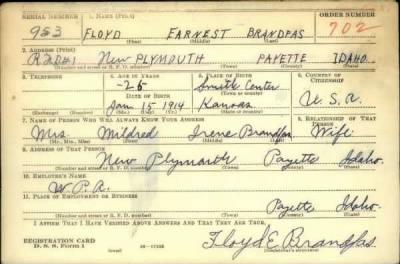 SERIAL NUMBER 1. NAME (Print) ORDER NUMBER
953 FLOYD EARNEST BRANDFAS 702
(First) (Middle) (Last)
2. ADDRESS (Print)
R.F.D#1 NEW PLYMOUTH PAYETTE IDAHO.
(Number and street or R. F. D. number) (Town) (County) (State)
3. TELEPHONE 4. AGE IN YEARS 5. PLACE OF BIRTH 6. COUNTRY OF CITIZENSHIP
-26 Smith Center
DATE OF BIRTH (Town or county)
Jan 15 1914 Kansas U.S.A.
(Exchange) (Number) (Mo.) (Day) (Yr.) (State or country)
7. NAME OF PERSON WHO WILL ALWAYS KNOW YOUR ADDRESS 8. RELATIONSHIP OF THAT PERSON
Mrs. Mildred Irene Brandfas Wife
(Mr., Mrs., Miss) (First) (Middle) (Last)
9. ADDRESS OF THAT PERSON
New Plymouth Payette Idaho.
(Number and street or R. F. D. number) (Town) (County) (State)
10. EMPLOYER'S NAME
W.P.A.
11. PLACE OF EMPLOYMENT OR BUSINESS
Payette Idaho.
(Number and street or R. F. D. number) (Town) (County) (State)
I AFFIRM THAT I HAVE VERIFIED ABOVE ANSWERS AND THAT THEY ARE TRUE.
REGISTRATION CARD
D. S. S. Form 1
Floyd E. Brandfas.
(Registrant's signature)